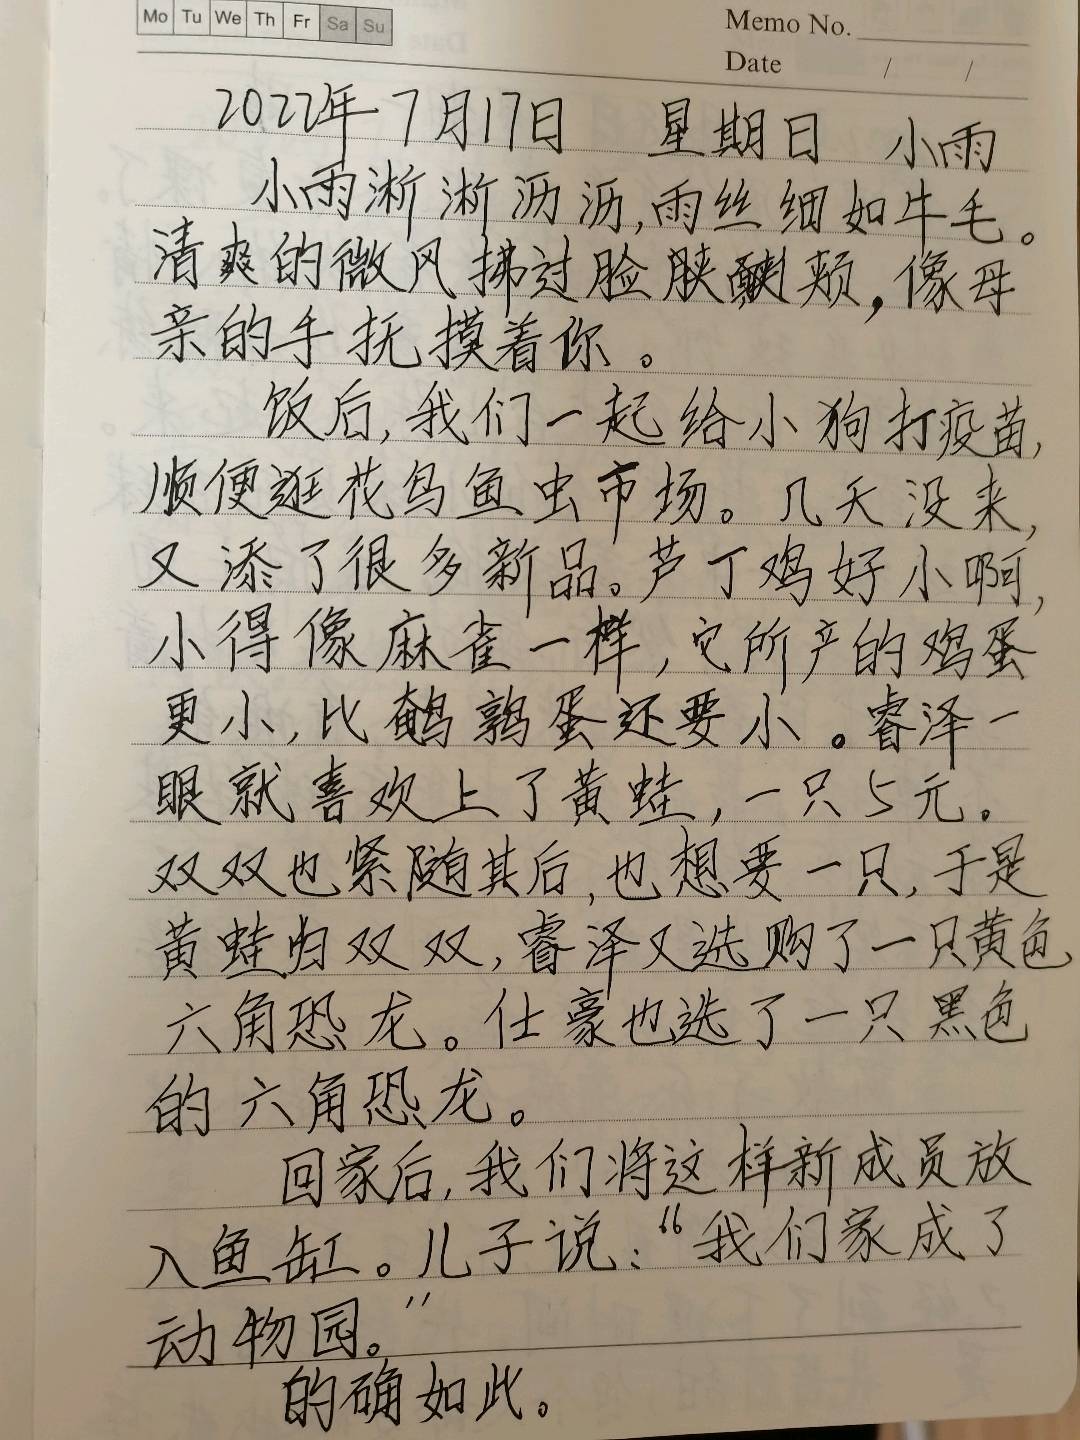 Mo Tu We Th Fr Sa Su
Memo No.
Date / /
2022年7月17日 星期日 小雨
小雨淅淅沥沥,雨丝细如牛毛。
清爽的微风拂过脸庞颊,像母
亲的手抚摸着你。
饭后,我们一起给小狗打疫苗,
顺便逛花鸟鱼虫市场。几天没来,
又添了很多新品。芦丁鸡好小啊,
小得像麻雀一样,它所产的鸡蛋
更小,比鹌鹑蛋还要小。睿泽一
眼就喜欢上了黄蛙,一只5元。
双双也紧随其后,也想要一只,于是
黄蛙归双双,睿泽又选购了一只黄色
六角恐龙。仕豪也选了一只黑色
的六角恐龙。
回家后,我们将这样新成员放
入鱼缸。儿子说:“我们家成了
动物园。”
的确如此。